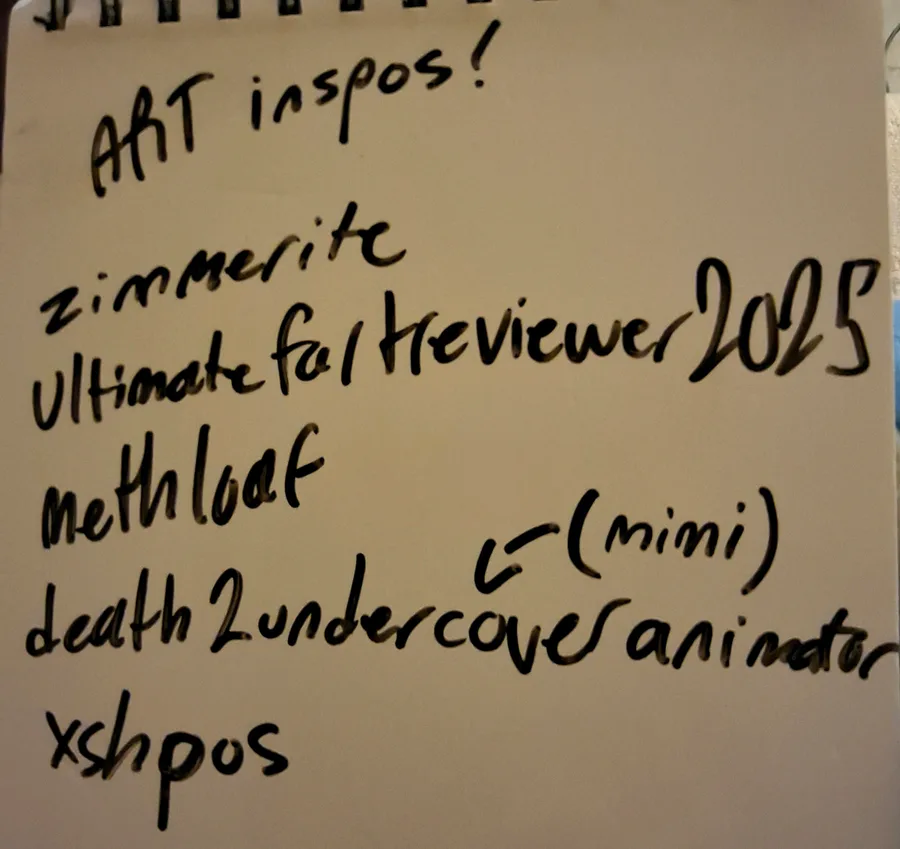 ART inspos!
zimmerite
ultimatefartreviewer2025
methloaf
(mimi)
death2undercoveranimator
xshpos